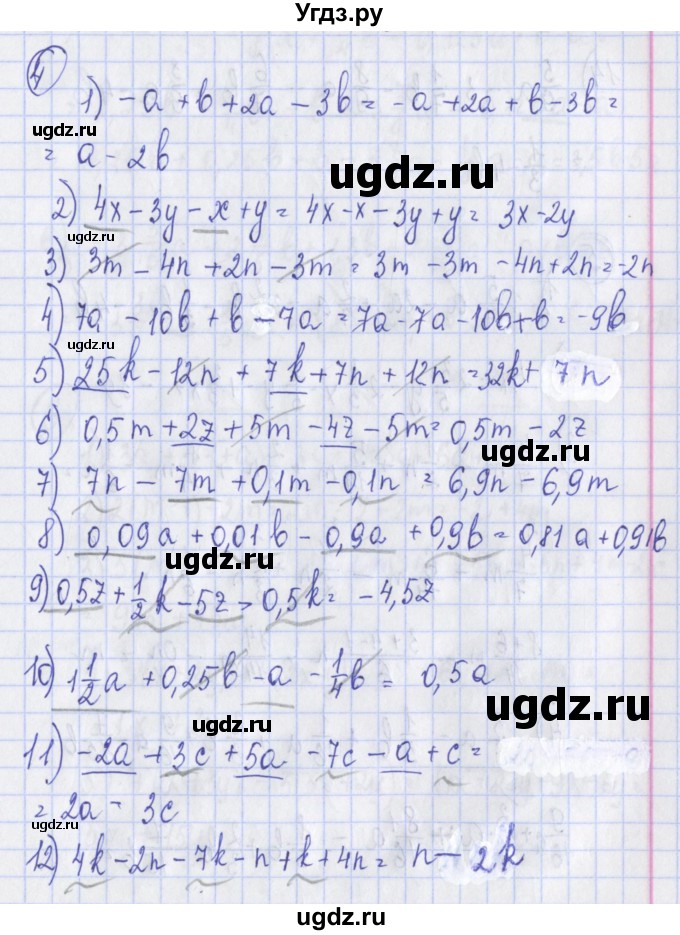 Угдз.ру
4
1) -a + b + 2a - 3b = -a + 2a + b - 3b =
ugdz.ru
= a - 2b
ugdz.ru
2) 4x - 3y - x + y = 4x - x - 3y + y = 3x - 2y
ugdz.ru
3) 3m - 4n + 2n - 3m = 3m - 3m - 4n + 2n = -2n
4) 7a - 10b + b - 7a = 7a - 7a - 10b + b = -9b
ugdz.ru
5) 25k - 12n + 7k + 7n + 12n = 32k + 7n
ugdz.ru
6) 0,5m + 2z + 5m - 4z - 5m = 0,5m - 2z
ugdz.ru
7) 7n - 7m + 0,1m - 0,1n = 6,9n - 6,9m
8) 0,09a + 0,01b - 0,9a + 0,9b = 0,81a + 0,91b
ugdz.ru
9) 0,5z + 1/2 k - 5z - 0,5k = -4,5z
ugdz.ru
10) 1 1/2 a + 0,25b - a - 1/4 b = 0,5a
ugdz.ru
ugdz.ru
11) -2a + 3c + 5a - 7c - a + c =
= 2a - 3c
ugdz.ru
ugdz.ru
12) 4k - 2n - 7k - n + k + 4n = n - 2k
ugdz.ru